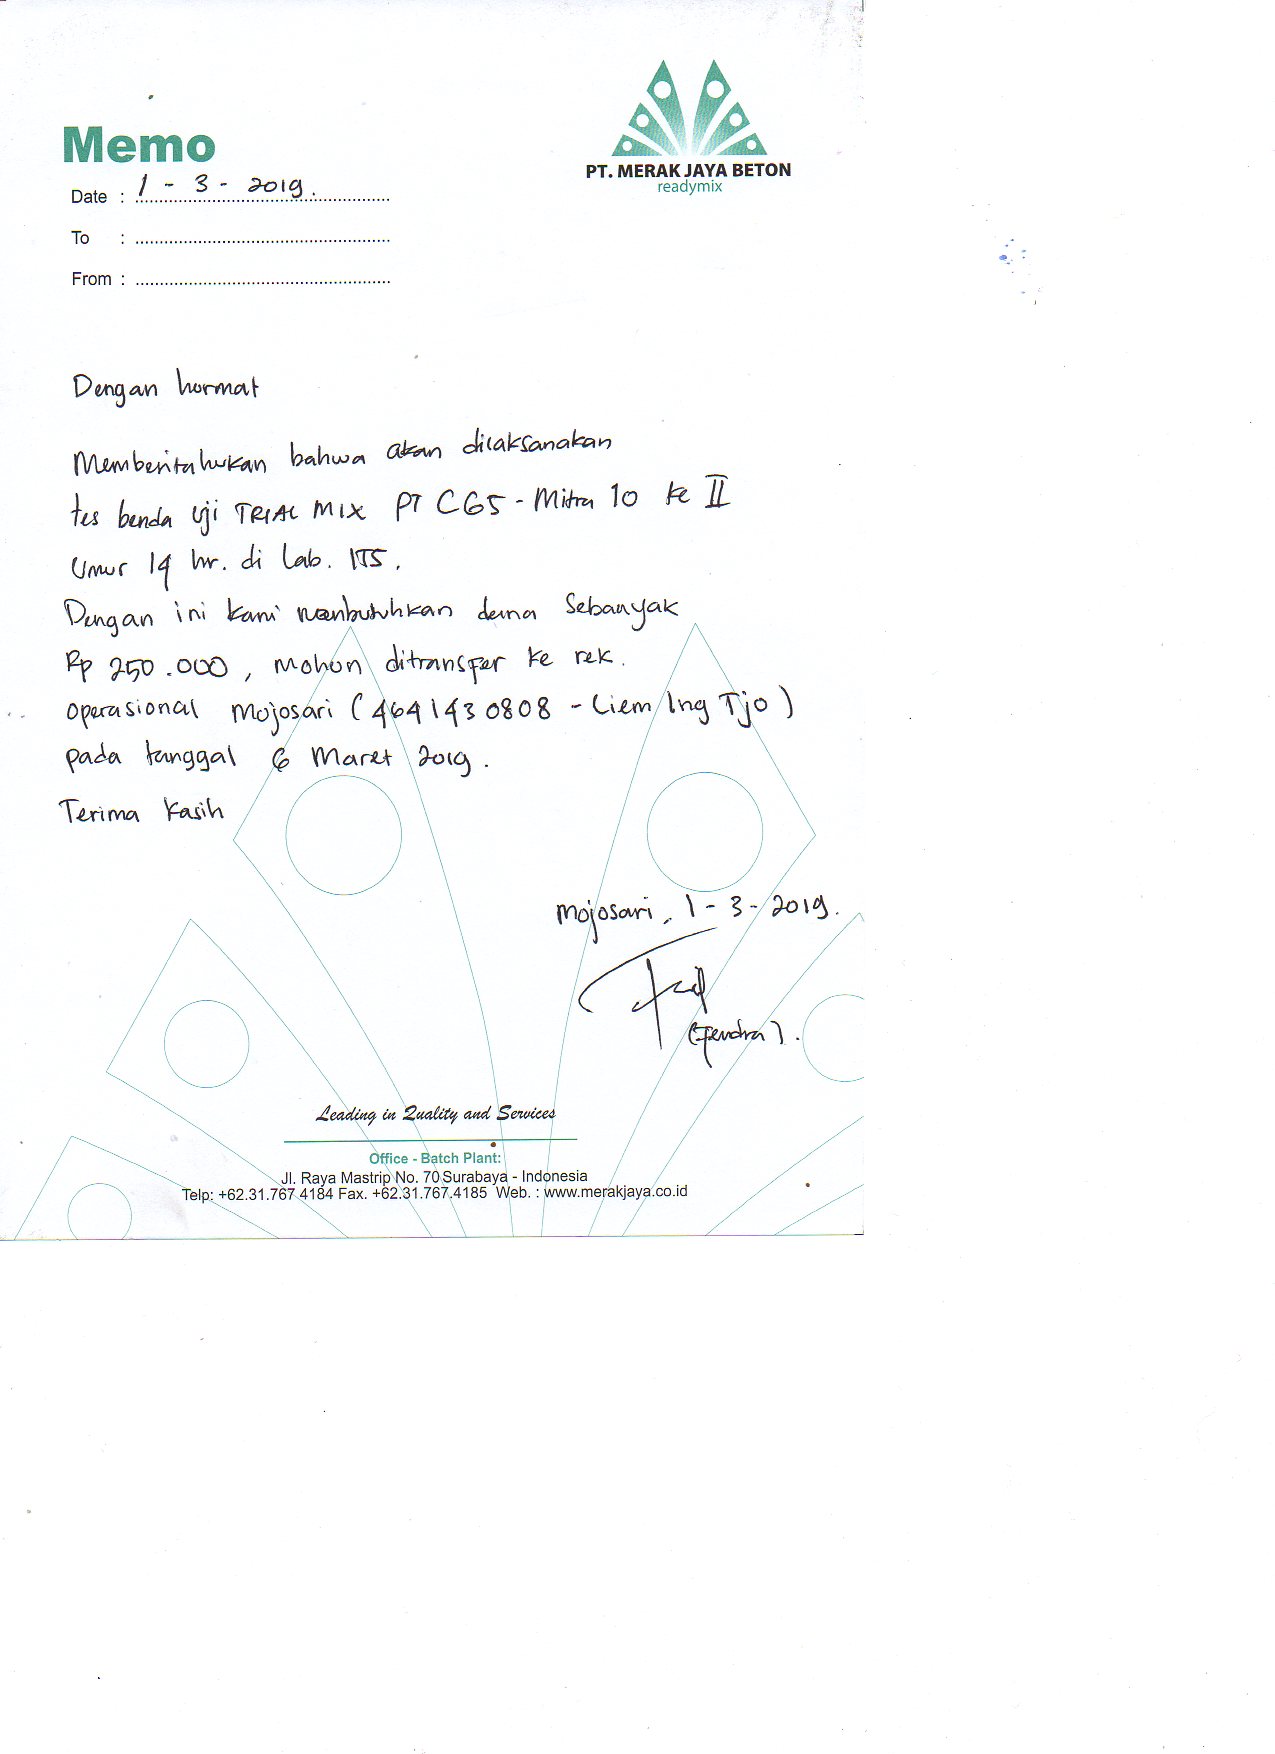 Memo
PT. MERAK JAYA BETON
readymix
Date : 1 - 3 - 2019.
To :
From :
Dengan hormat
Memberitahukan bahwa akan dilaksanakan
tes benda uji TRIAL MIX PT CGS - Mitra 10 ke II
Umur 14 hr. di Lab. ITS.
Dengan ini kami membutuhkan dana Sebanyak
Rp 250.000, Mohon ditransfer ke rek.
operasional Mojosari (4641430808 - Liem Ing Tjo)
pada tanggal 6 Maret 2019.
Terima Kasih
Mojosari, 1 - 3 - 2019.
Leading in Quality and Services
Office - Batch Plant:
Jl. Raya Mastrip No. 70 Surabaya - Indonesia
Telp: +62.31.767 4184 Fax. +62.31.767.4185 Web. : www.merakjaya.co.id